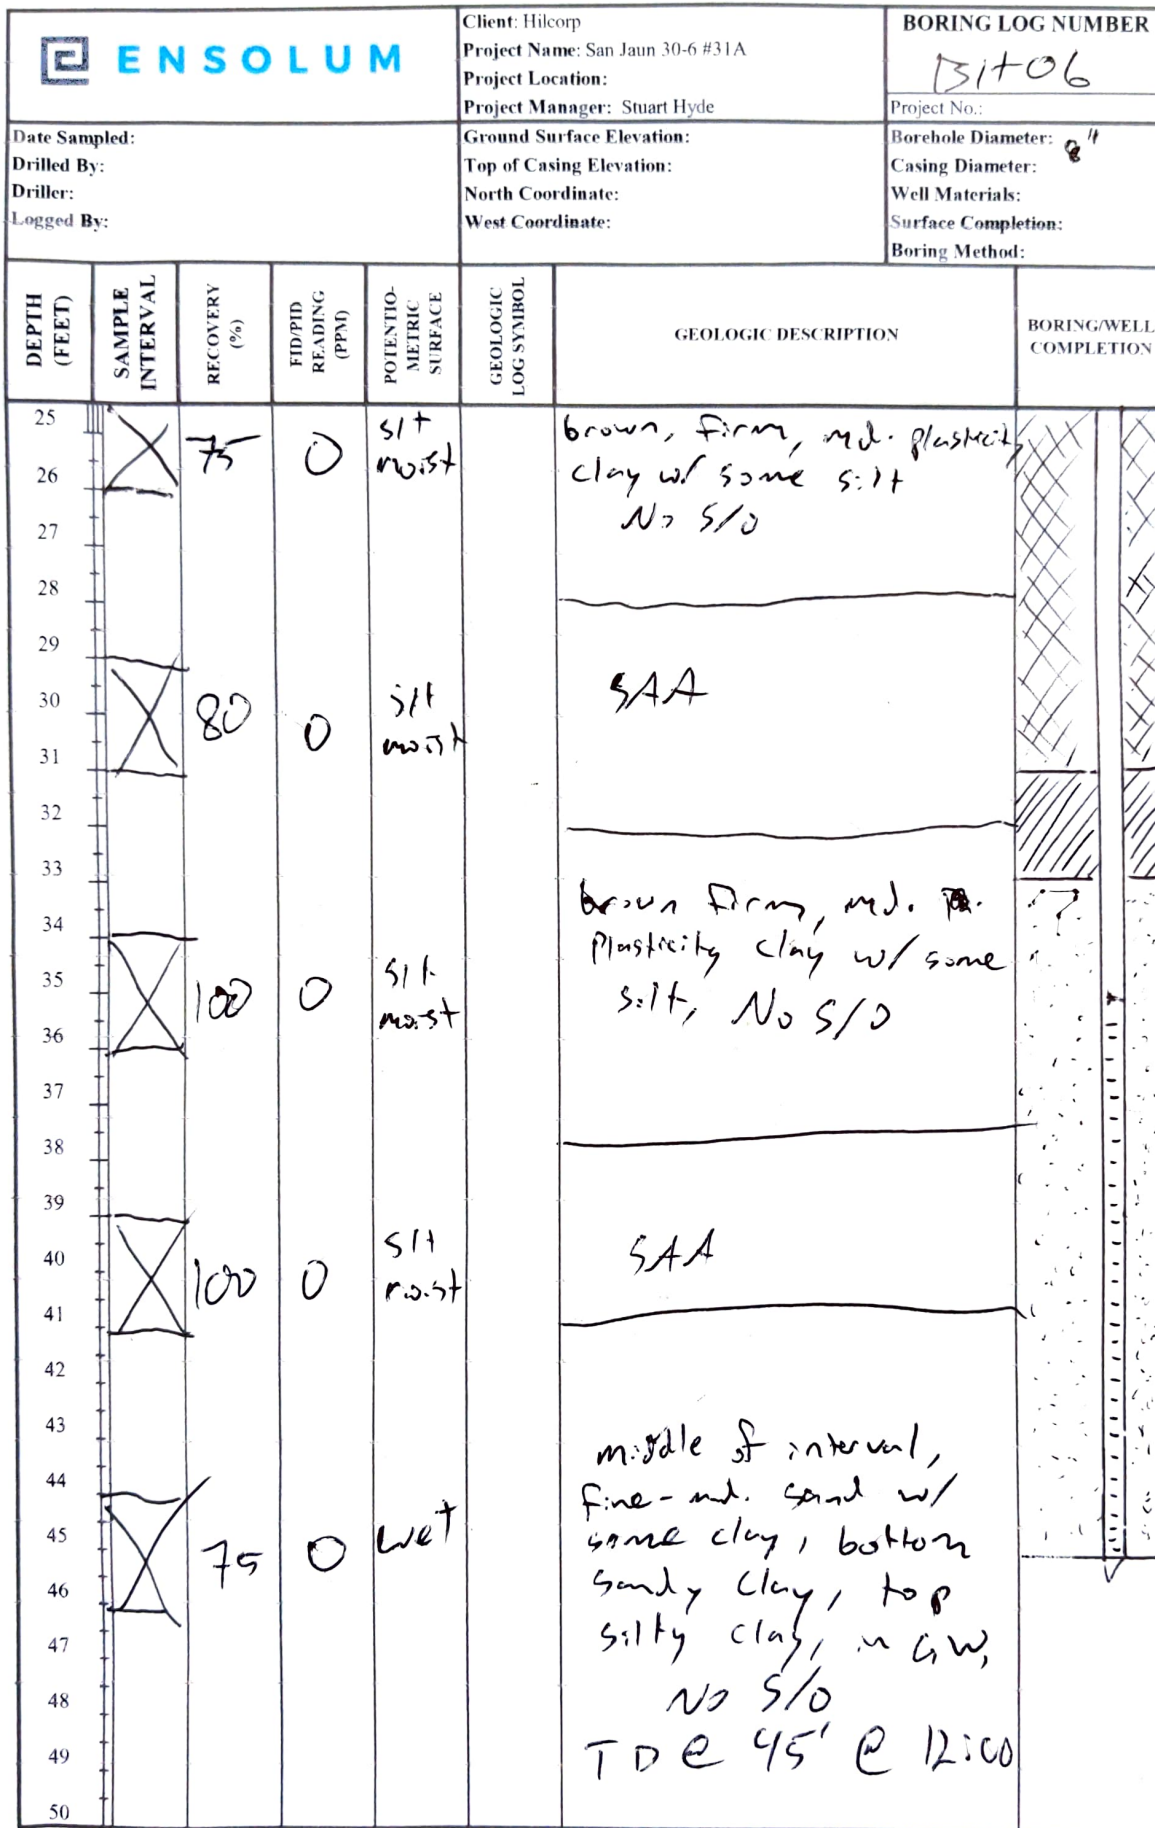 ENSOLUM
Client: Hilcorp
Project Name: San Jaun 30-6 #31A
Project Location:
Project Manager: Stuart Hyde
BORING LOG NUMBER
BH06
Project No.:
Date Sampled:
Drilled By:
Driller:
Logged By:
Ground Surface Elevation:
Top of Casing Elevation:
North Coordinate:
West Coordinate:
Borehole Diameter: 8"
Casing Diameter:
Well Materials:
Surface Completion:
Boring Method:
DEPTH
(FEET)
SAMPLE
INTERVAL
RECOVERY
(%)
FID/PID
READING
(PPM)
POTENTIO-
METRIC
SURFACE
GEOLOGIC
LOG SYMBOL
GEOLOGIC DESCRIPTION
BORING/WELL
COMPLETION
25
26
27
28
29
30
31
32
33
34
35
36
37
38
39
40
41
42
43
44
45
46
47
48
49
50
75 0 slt
moist
brown, firm, md. plasticity
clay w/ some silt
No S/O
80 0 slt
moist
SAA
100 0 slt
moist
brown firm, md.
Plasticity clay w/ some
silt, No S/O
100 0 slt
moist
SAA
75 0 wet
middle of interval,
fine-md. sand w/
some clay, bottom
sandy clay, top
silty clay, in GW,
No S/O
TD @ 45' @ 12:00